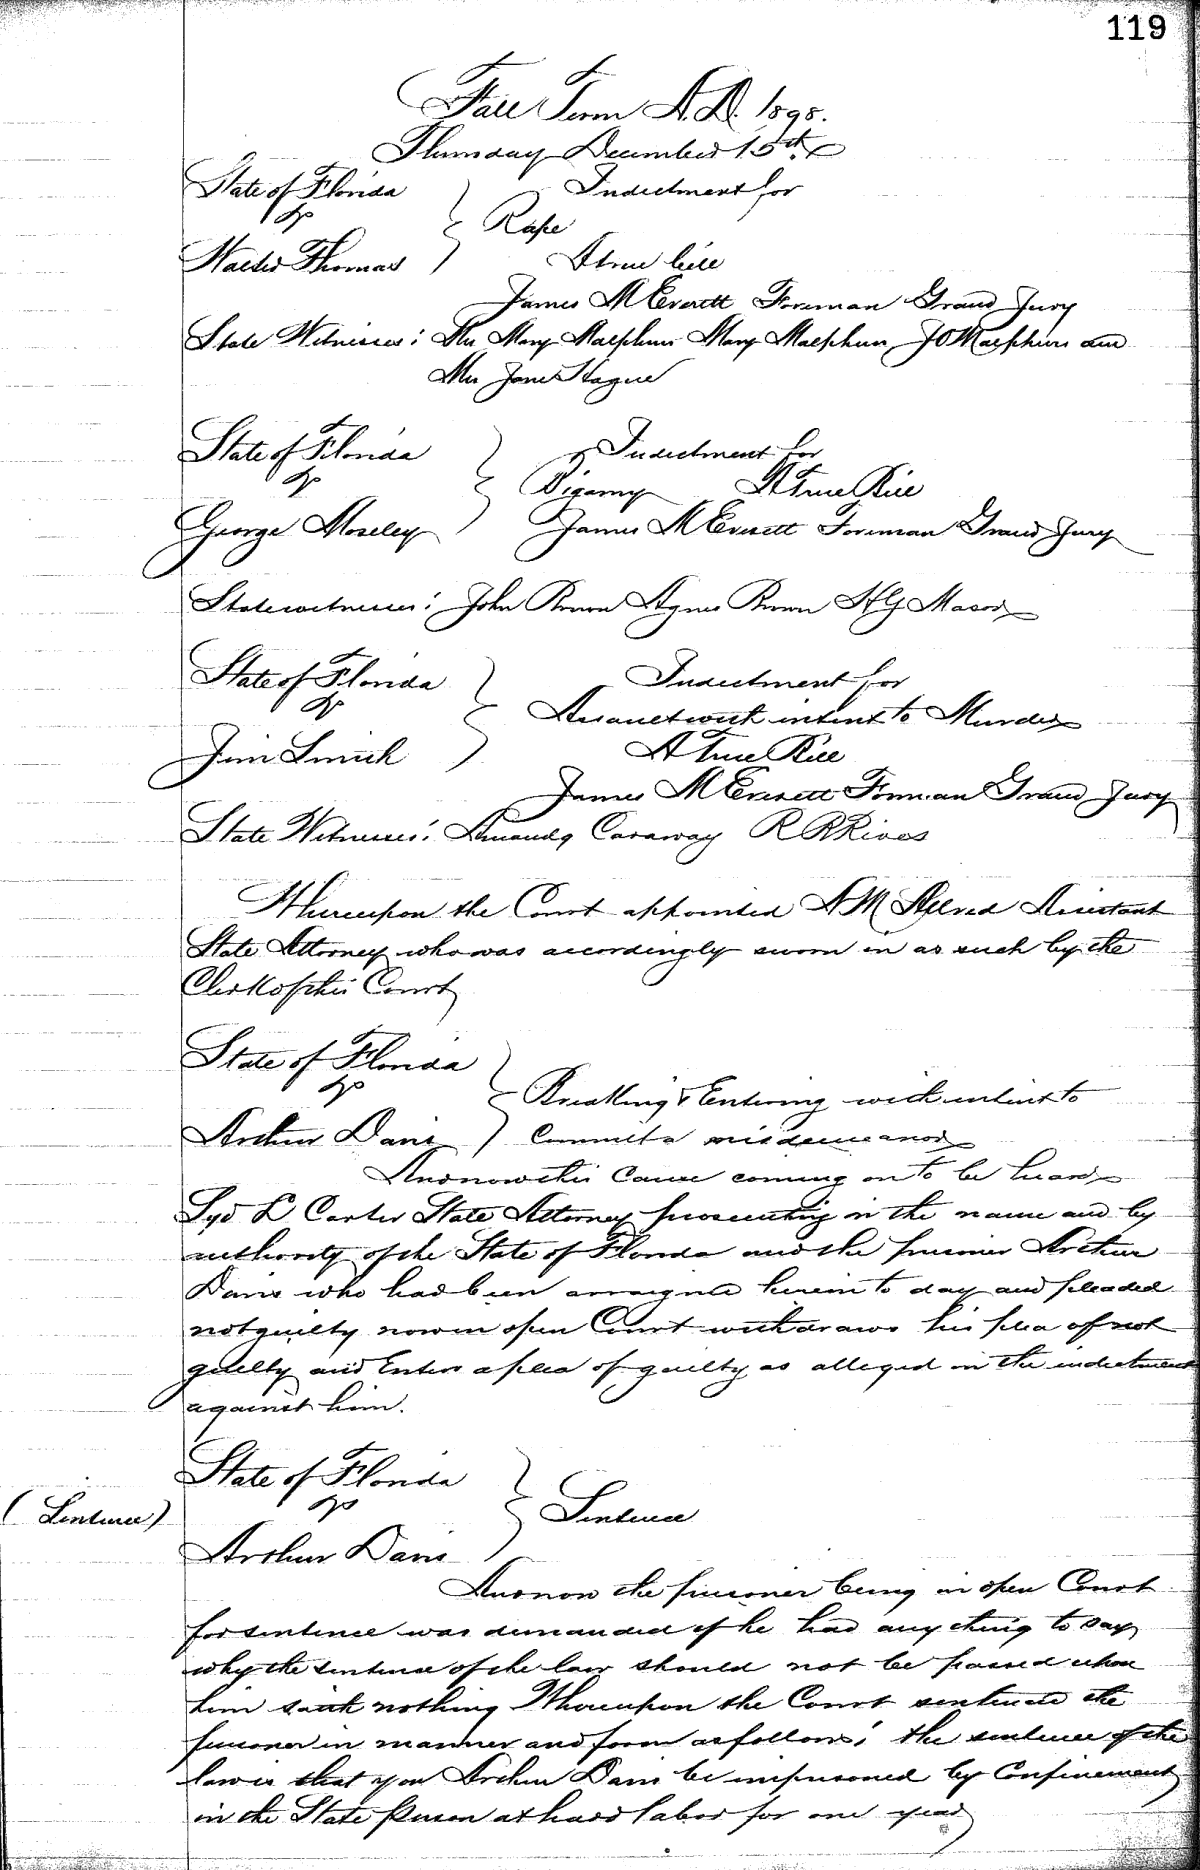 119
Fall Term A.D. 1898.
Thursday December 15th
State of Florida Indictment for
vs Rape
Walter Thomas A true bill
James M Everett Foreman Grand Jury
State Witnesses: Mrs Mary Malphurs Mary Malphurs J O Malphurs and
Mrs Jane Hague
State of Florida Indictment for
vs Bigamy A True Bill
George Moseley James M Everett Foreman Grand Jury
State witnesses: John Brown Agnes Brown H G Mason
State of Florida Indictment for
vs Assault with intent to Murder
Jim Smith A True Bill
James M Everett Forman Grand Jury
State Witnesses: Amanda Caraway R B Rives
Whereupon the Court appointed A M Allred Assistant
State Attorney who was accordingly sworn in as such by the
Clerk of this Court
State of Florida
vs Breaking & Entering with intent to
Arthur Davis Commit a misdemeanor
And now this Cause coming on to be heard
Syd L Carter State Attorney prosecuting in the name and by
authority of the State of Florida and the prisoner Arthur
Davis who had been arraigned herein to day and pleaded
not guilty now in open Court withdraws his plea of not
guilty and Enters a plea of guilty as alleged in the indictment
against him.
State of Florida
(Sentence) vs Sentence
Arthur Davis
And now the prisoner being in open Court
for sentence was demanded if he had any thing to say
why the sentence of the law should not be passed upon
him saith nothing Whereupon the Court sentenced the
prisoner in manner and form as follows: the sentence of the
law is that you Arthur Davis be imprisoned by Confinement
in the State Prison at hard labor for one year